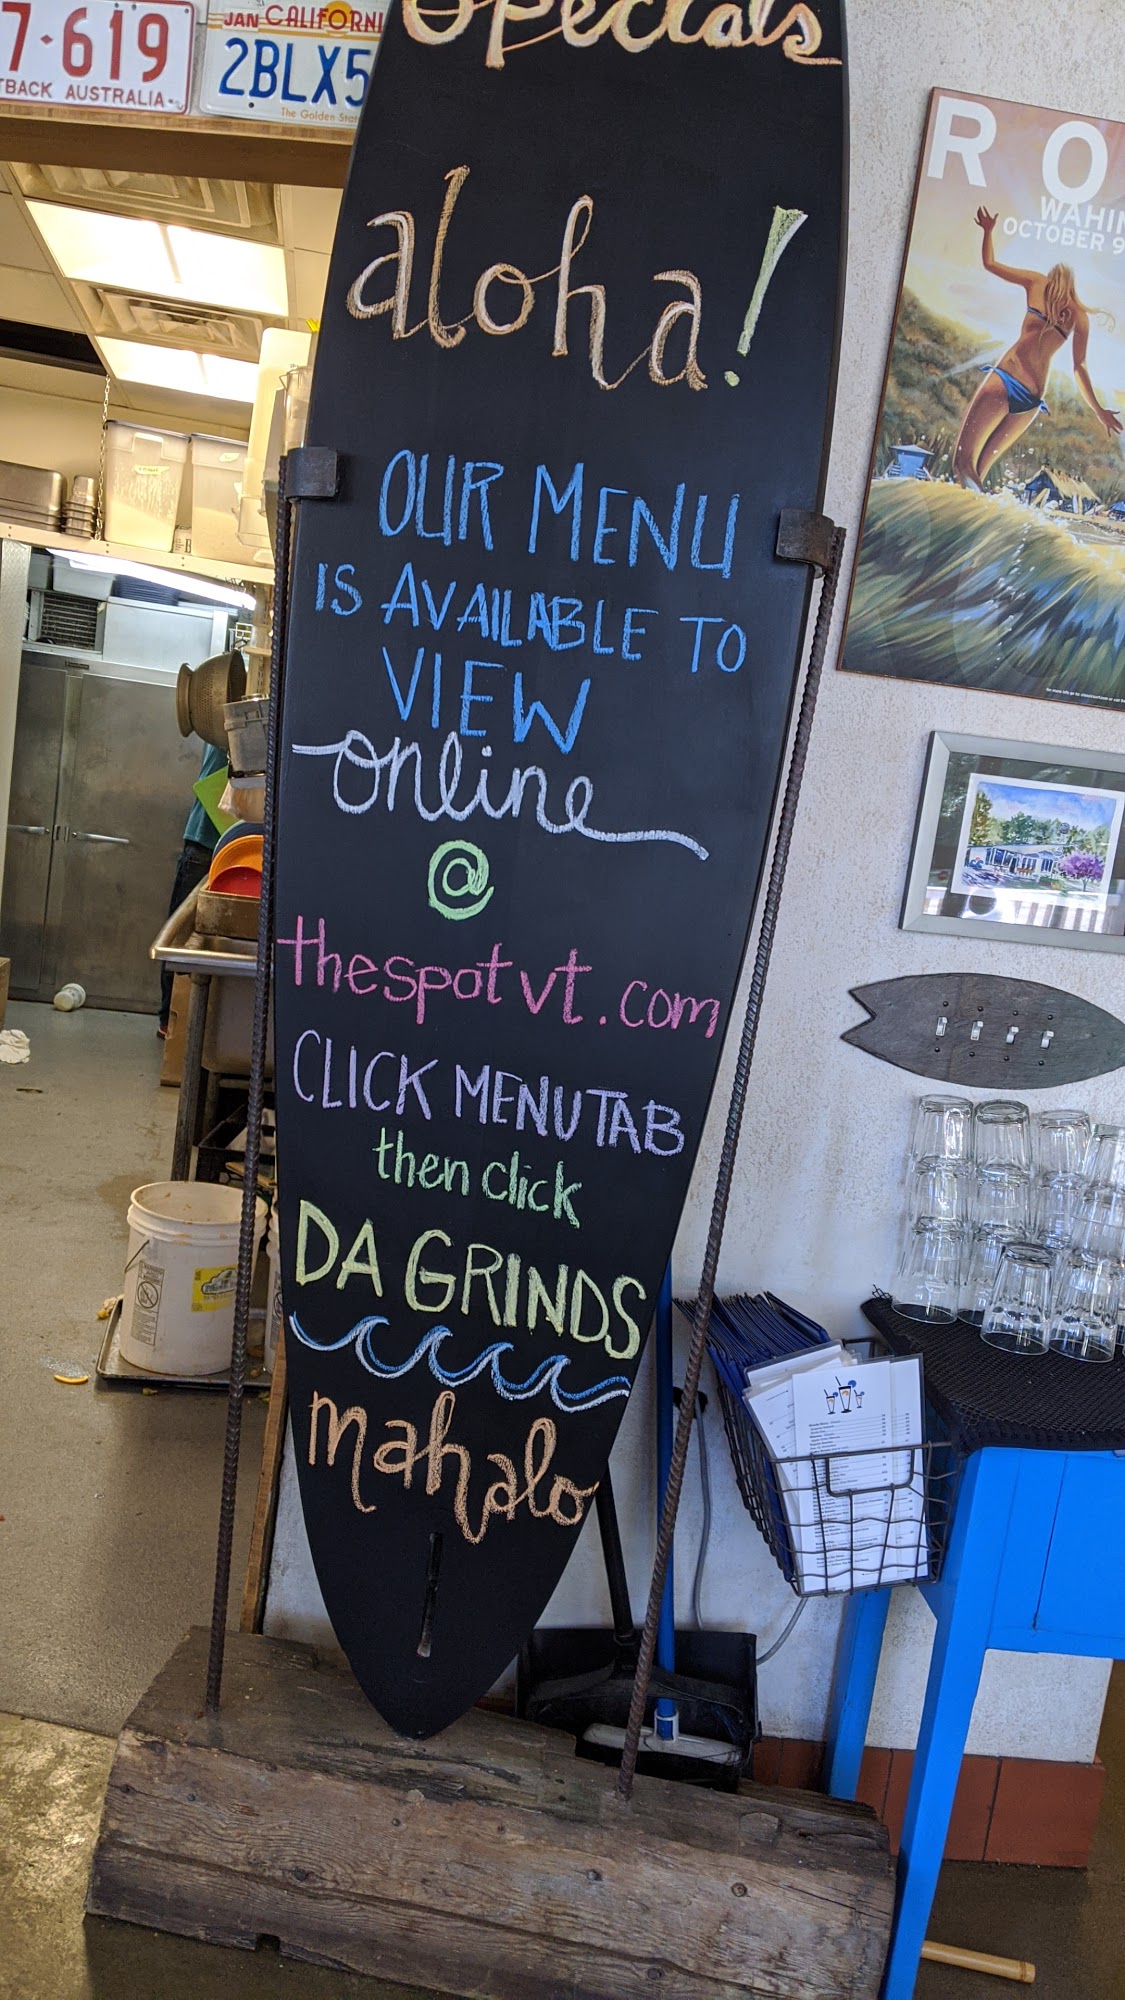 Specials
7·619
TBACK AUSTRALIA
JAN CALIFORNI
2BLX5
The Golden Stat
aloha!
OUR MENU
IS AVAILABLE TO
VIEW
online
@
thespotvt.com
CLICK MENU TAB
then click
DA GRINDS
mahalo
R O
WAHIN
OCTOBER 9